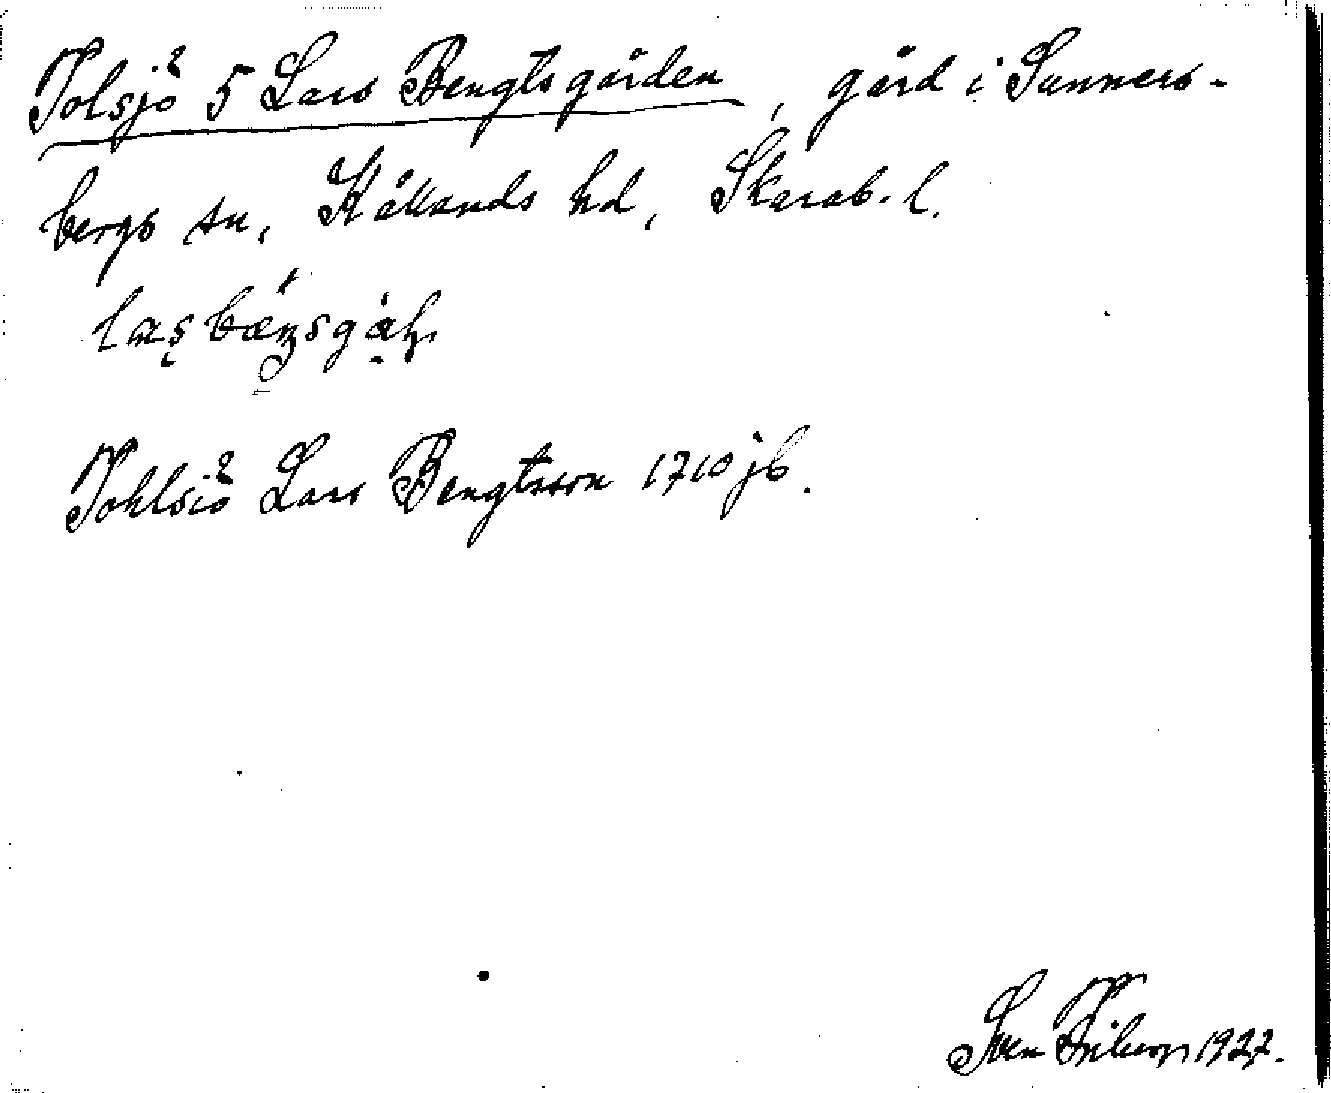 Tolsjö 5 Lars Bengtsgården, gård i Sunners-
bergs sn, Kållands hd, Skarab. l.
Tohlsiö Lars Bengtsson 1710 jb.
Sven Friberg 1927.